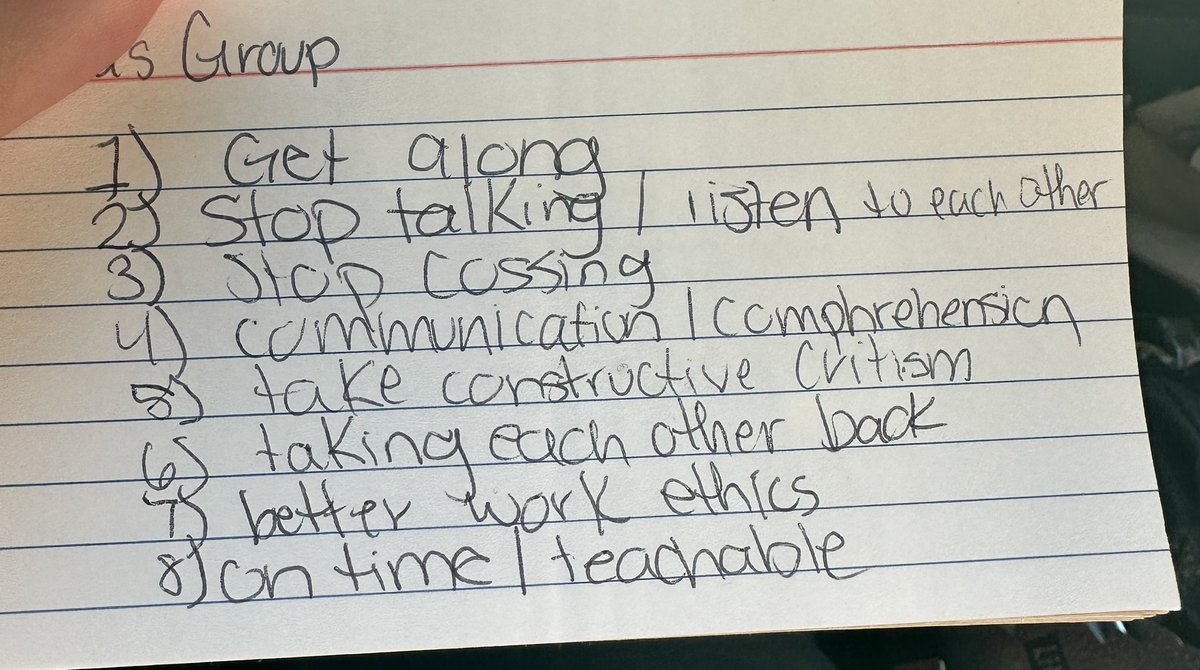 as Group
1) Get along
2) Stop talking / listen to each other
3) Stop cussing
4) communication / comphrehension
5) take constructive Critism
6) taking each other back
7) better work ethics
8) on time / teachable